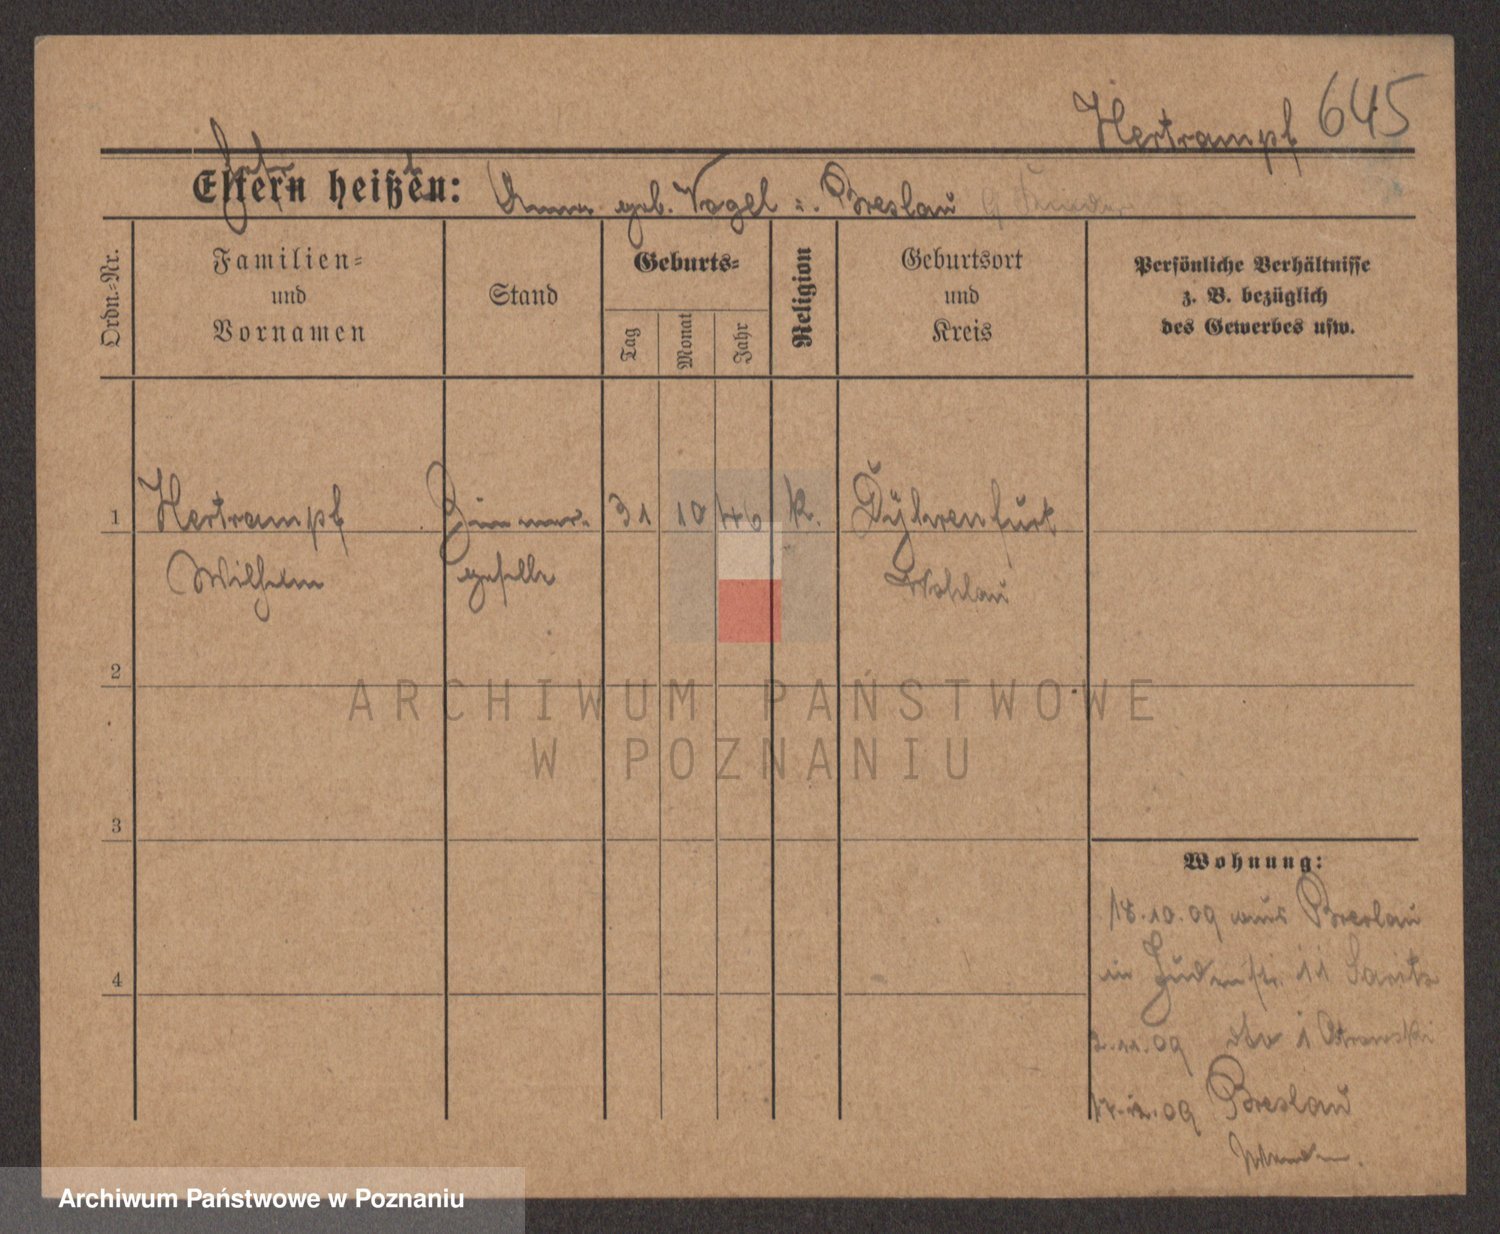 Hertrampf 645
Eltern heißen: Anna geb. Vogel z. Breslau
Ordn.-Nr.
Familien-
und
Vornamen
Stand
Geburts-
Tag
Monat
Jahr
Religion
Geburtsort
und
Kreis
Persönliche Verhältnisse
z. B. bezüglich
des Gewerbes usw.
1 Hertrampf Zimmer- 31 10 46 k. Dyhrenfurt
Wilhelm geselle Wohlau
2
ARCHIWUM PAŃSTWOWE
W POZNANIU
3
Wohnung:
18.10.09 aus Breslau
in Judenstr. 11
4
2.11.09 dto
17.12.09 Breslau
Archiwum Państwowe w Poznaniu